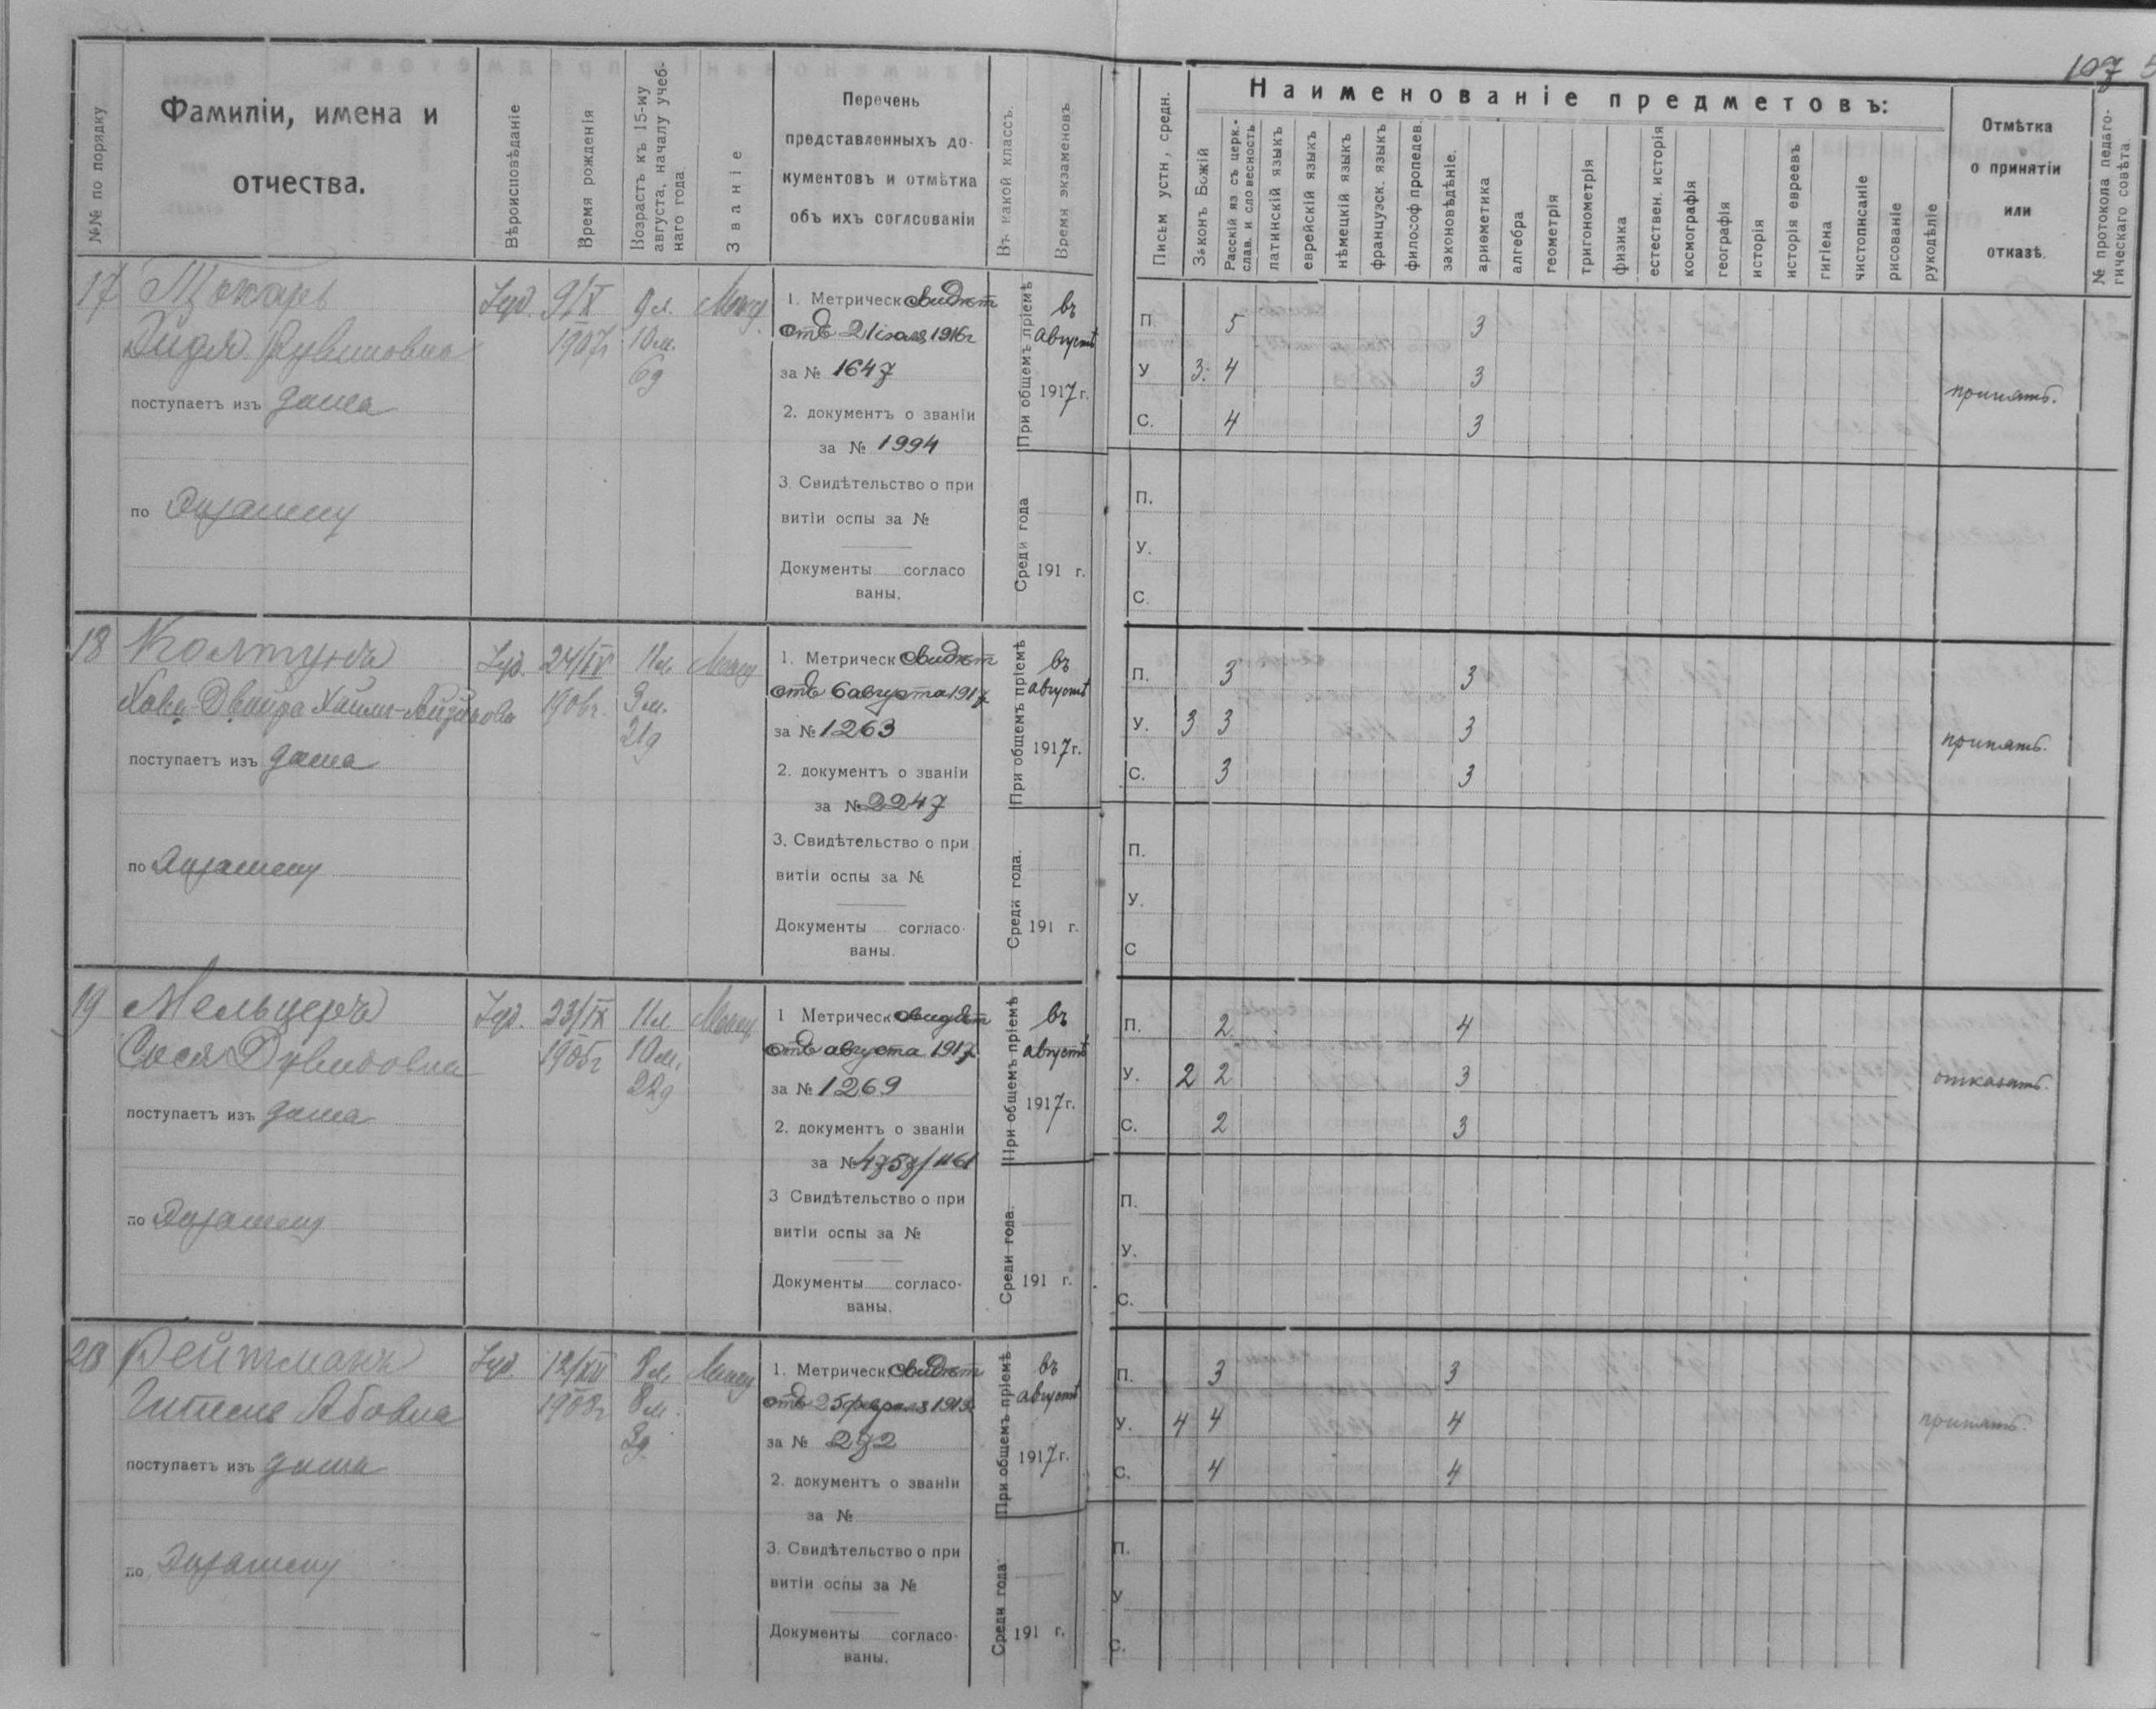 107
№№ по порядку
Фамиліи, имена и
отчества.
Вѣроисповѣданіе
Время рожденія
Возрастъ къ 15-му
августа, началу учеб-
наго года.
Званіе
Перечень
представленныхъ до-
кументовъ и отмѣтка
объ ихъ согласованіи
Въ какой классъ.
Время экзаменовъ
Письм устн, средн.
Наименованіе предметовъ:
Законъ Божій
Русскій яз съ церк.-
слав. и словесность
латинскій языкъ
еврейскій языкъ
нѣмецкій языкъ
французск. языкъ
философ пропедев.
законовѣдѣніе.
ариѳметика
алгебра
геометрія
тригонометрія
физика
естествен. исторія
космографія
географія
исторія
исторія евреевъ
гигіена
чистописаніе
рисованіе
рукодѣліе
Отмѣтка
о принятіи
или
отказѣ.
№ протокола педаго-
гическаго совѣта.
17
Іуд.
9/X
1907г
9л.
10м.
6д
поступаетъ изъ дома
по
1. Метрическ свидѣт
отъ 21 1916г
за № 1647
2. документъ о званіи
за № 1994
3. Свидѣтельство о при
витіи оспы за №
Документы согласо
ваны.
При общемъ пріемѣ
въ
августѣ
1917 г.
Среди года
191 г.
П. 5 3
У 3. 4 3
С. 4 3
принять.
П.
У.
С.
18 Колтунъ
Хава-Двейра
Іуд.
24/IV
1906г.
11л.
3м.
21д
поступаетъ изъ дома
по
1. Метрическ свидѣт
отъ 6 августа 1917
за № 1263
2. документъ о званіи
за № 2247
3. Свидѣтельство о при
витіи оспы за №
Документы согласо-
ваны.
При общемъ пріемѣ
въ
августѣ
1917 г.
Среди года.
191 г.
П. 3 3
У. 3 3 3
С. 3 3
принять.
П.
У.
С
19 Мельцеръ
Іуд.
23/IX
1905г
11л
10м.
22д
поступаетъ изъ дома
по
1 Метрическ свидѣт
отъ августа 1917
за № 1269
2. документъ о званіи
за № 4757/1161
3 Свидѣтельство о при
витіи оспы за №
Документы согласо-
ваны.
При общемъ пріемѣ
въ
августѣ
1917 г.
Среди года.
191 г.
П. 2 4
У. 2 2 3
С. 2 3
отказать.
П.
У.
С.
20 Рейтманъ
Абовна
Іуд.
12/XII
1908г
8л.
8м.
3д.
поступаетъ изъ дома
по
1. Метрическ. свидѣт
отъ 25 февраля
за № 272
2. документъ о званіи
за №
3. Свидѣтельство о при
витіи оспы за №
Документы согласо-
ваны.
При общемъ пріемѣ
въ
августѣ
1917 г.
Среди года
191 г.
П. 3 3
У. 4 4 4
С. 4 4
принять.
П.
У
С.